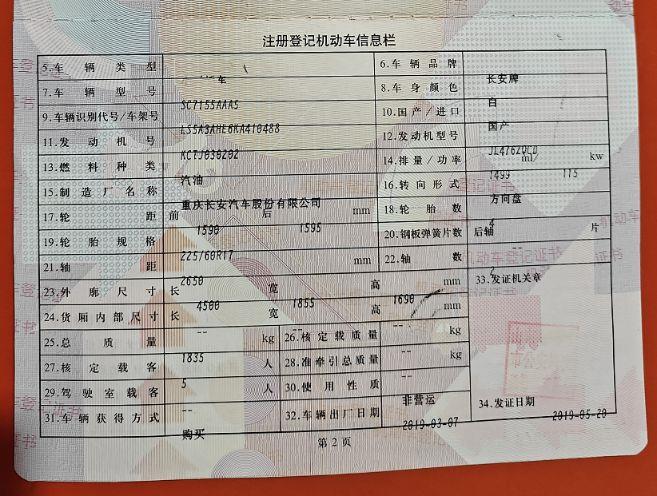 注册登记机动车信息栏
5.车辆类型 车 6.车辆品牌 长安牌
7.车辆型号 SC7155AAA5 8.车身颜色 白
9.车辆识别代号/车架号 LS5A3AHE6KA410488 10.国产/进口 国产
11.发动机号 KCTJ030202 12.发动机型号 JL476ZQCD
13.燃料种类 汽油 14.排量/功率 1499 ml/ 115 kw
15.制造厂名称 重庆长安汽车股份有限公司 16.转向形式 方向盘
17.轮距 前 1590 后 1595 mm 18.轮胎数 4
19.轮胎规格 225/60R17 20.钢板弹簧片数 后轴 -- 片
21.轴距 2650 mm 22.轴数 2
23.外廓尺寸 长 4500 宽 1855 高 1690 mm 33.发证机关章
24.货厢内部尺寸 长 -- 宽 -- 高 -- mm
25.总质量 1835 kg 26.核定载质量 -- kg
27.核定载客 5 人 28.准牵引总质量 -- kg
29.驾驶室载客 -- 人 30.使用性质 非营运
31.车辆获得方式 购买 32.车辆出厂日期 2019-03-07 34.发证日期 2019-05-20
第2页